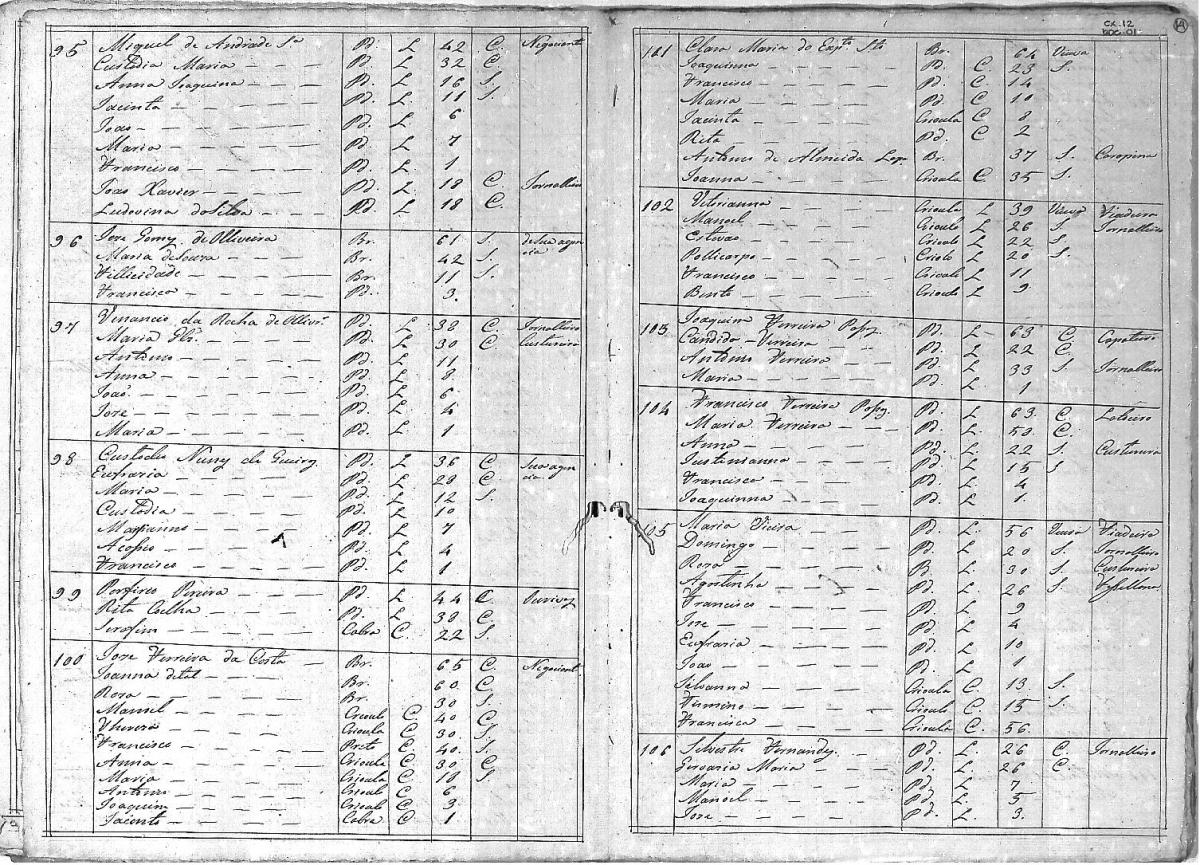 CX. 12
DOC. 01
14
95 Miguel de Andrade Sᵃ Pd. L 42 C. Negociante
Custodia Maria Pd. L 32 C
Anna Joaquina Pd. L 16 S.
Jacinta Pd. L. 11 S.
Joao Pd. L 6
Maria Pd. L 7
Francisco Pd. L 1
Joao Xavier Pd. L 18 C. Jornalleiro
Ludovina da Silva Pd. L 18 C.
96 Jose Gomes de Olliveira Br. 61 S. de Sua agen
Maria de Souza Br. 42 S. cia
Fillicidade Br. 11 S.
Francisco Pd. 3.
97 Venancio da Rocha de Ollivrᵃ Pd. L 38 C. Jornalleiro
Maria Glz. Pd. L 30 C Custureira
Antonio Pd. L 11
Anna Pd. L 8
Joao Pd. L 6
Jose Pd. L 4
Maria Pd. L 1
98 Custodio Nunes de Pd. L 36 C Sua agen
Eufrasia Pd. L 28 C cia
Maria Pd. L 12 S.
Custodia Pd. L 10
Marianno Pd. L 7
Pd. L 4
Francisco Pd. L 1
99 Porfirio Pereira Pd. L 44 C. Ourives
Rita Coelha Pd. L 38 C
Serafim Cabra C. 22 S.
100 Jose Ferreira da Costa Br. 65 C. Negociante
Joanna Br. 60 C.
Rosa Br. 30 S.
Manoel Crioulo C. 40 C
Crioula C. 30 S.
Francisco Preto C. 40 S.
Anna Crioula C 30 C
Maria Crioula C 18 S.
Antonio Crioulo C 6
Joaquim Crioulo C 3
Jacinto Cabra C 1
101 Clara Maria do Espᵗᵒ Stᵒ Br. 64 Viuva
Joaquinna P. C 23 S.
Francisco Pd. C 14
Maria Pd. C 10
Jacinta Crioula C 8
Rita Pd. C 2
Antonio de Almeida Br. 37 S. Carapina
Joanna Crioula C. 35 S.
102 Vitorianna Crioula L 39 Viuva Fiadeira
Manoel Crioulo L 26 S. Jornalleiro
Estevao Crioulo L 22 S.
Pollicarpo Criolo L 20 S.
Francisco Crioulo L 11
Bento Crioulo L 9
103 Joaquim Ferreira Pd. L 63 C. Capateiro
Candida Ferreira Pd. L 22 C
Antonio Ferreira Pd. L 33 S. Jornalleiro
Maria Pd. L 1
104 Francisco Ferreira Pd. L 63 C. Latoeiro
Maria Ferreira Pd. L. 53 C.
Anna Pd. L 22 S. Custureira
Justinianna Pd. L 15 S
Francisco Pd. L 4
Joaquinna Pd. L 1.
105 Maria Vieira Pd. L. 56 Viuva Fiadeira
Domingo Pd. L 20 S. Jornalleiro
Rosa P. L 30 S. Custureira
Agostinha Pd. L 26 S.
Francisco Pd. L 9
Jose Pd. L 4
Eufrasia Pd. L 10
Joao Pd. L 1
Silvanna Crioula C. 13 S.
Firmino Crioulo C. 15 S.
Francisca Crioula C. 56
106 Silvestre Fernandes Pd. L 26 C. Jornalleiro
Gervazia Maria Pd. L 26 C
Maria Pd. L 7
Manoel Pd. L 5
Jose Pd. L 3.